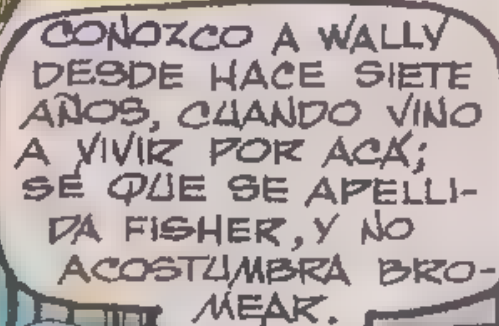 CONOZCO A WALLY
DESDE HACE SIETE
AÑOS, CUANDO VINO
A VIVIR POR ACÁ;
SÉ QUE SE APELLI-
DA FISHER, Y NO
ACOSTUMBRA BRO-
MEAR.